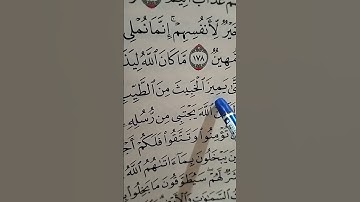 عَذَابٌ أَلِيمٌ
خَيْرٌ لِّأَنفُسِهِمْ ۚ إِنَّمَا نُمْلِى
مُّهِينٌ ١٧٨ مَّا كَانَ ٱللَّهُ لِيَذَ
يَمِيزَ ٱلْخَبِيثَ مِنَ ٱلطَّيِّبِ
ٱللَّهَ يَجْتَبِى مِن رُّسُلِهِ
تُؤْمِنُوا۟ وَتَتَّقُوا۟ فَلَكُمْ أَجْ
يَبْخَلُونَ بِمَآ ءَاتَىٰهُمُ ٱللَّهُ
لَّهُمْ سَيُطَوَّقُونَ مَا بَخِلُوا۟
ٱلسَّمَٰوَٰتِ وَٱلْأَرْ